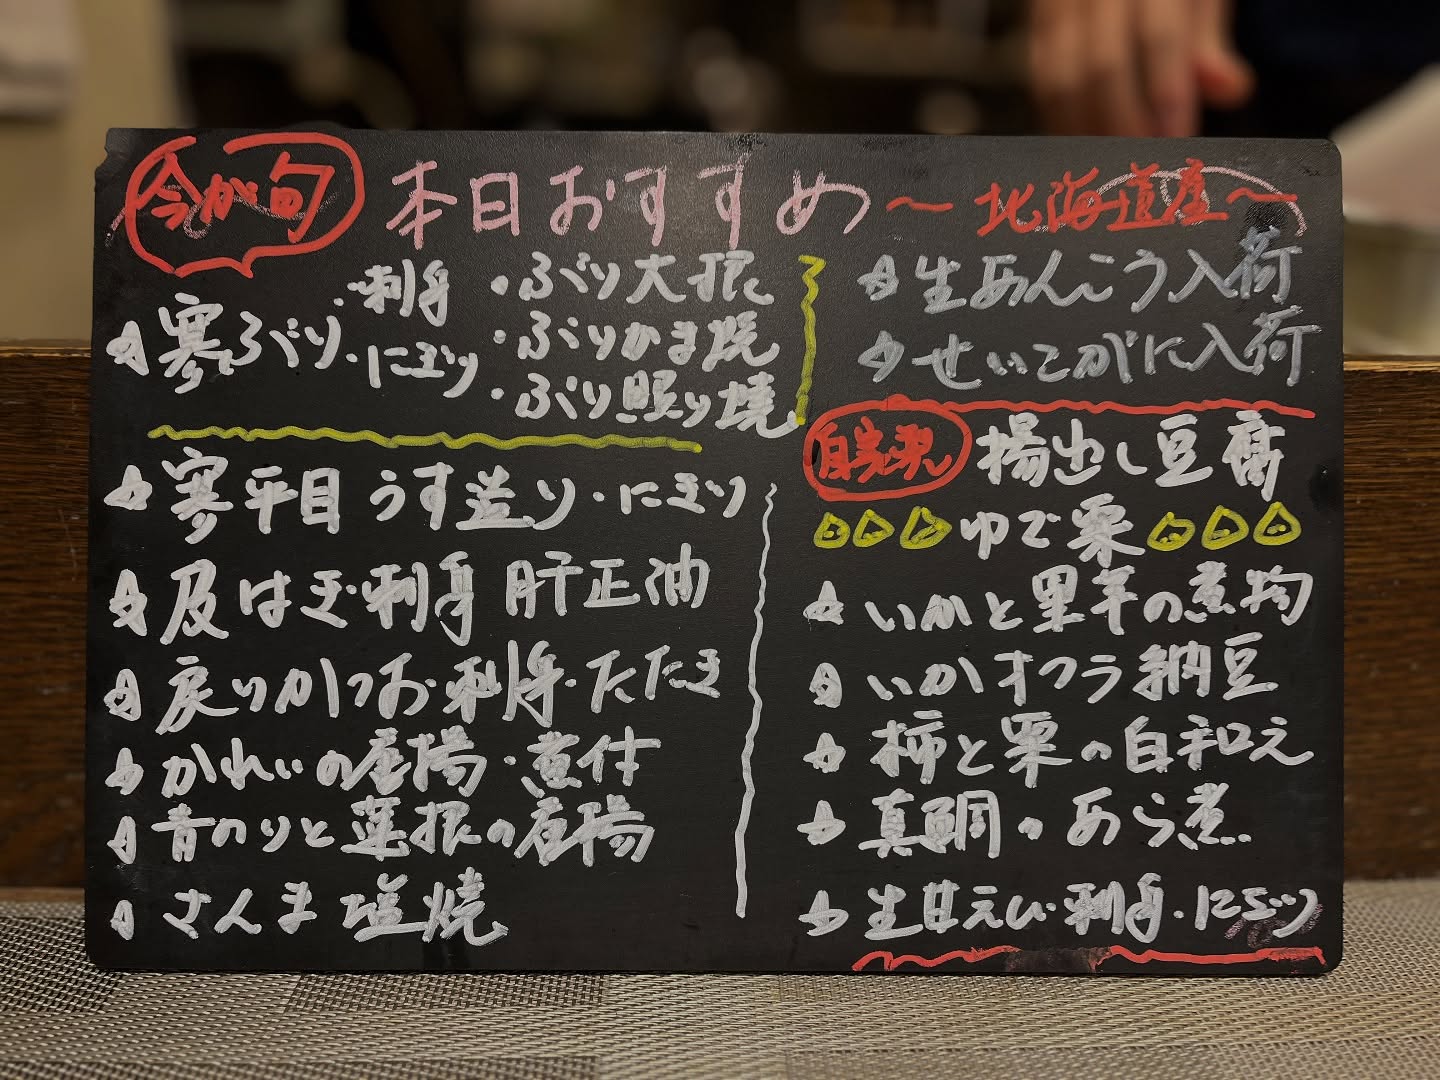 今が旬 本日おすすめ 〜北海道産〜
☆寒ぶり ・刺身 ・にぎり
・ぶり大根
・ぶりかま焼
・ぶり照り焼
☆寒平目うす造り・にぎり
☆皮はぎ刺身 肝正油
☆戻りかつお刺身・たたき
☆かれいの唐揚・煮付
☆青のりと蓮根の唐揚
☆さんま塩焼
☆生あんこう入荷
☆せいこがに入荷
自家製 揚出し豆腐
ゆで栗
☆いかと里芋の煮物
☆いかオクラ納豆
☆柿と栗の白和え
☆真鯛のあら煮
☆生甘えび刺身・にぎり